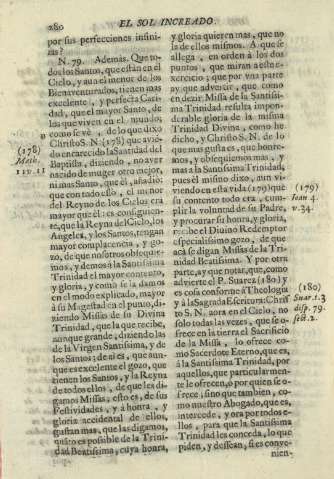 280 EL SOL INCREADO.
por sus perfecciones infini-
tas?
N. 79. Además. Que to-
dos los Santos, que están en el
Cielo, y aun el menor de los
Bienaventurados, tienen mas
excelente, y perfecta Cari-
dad, que el mayor Santo, de
los que viven en el mundo;
como se vè, de lo que dixo
Christo S. N. (178) que avié-
do encarecido la Santidad del
Baptista, diziendo, no aver
nacido de muger otro mejor,
ni mas Santo, que èl, añadiò
que con todo esso, el menor
del Reyno de los Cielos era
mayor que èl: es consiguien-
te, que la Reyna del Cielo, los
Angeles, y los Santos, tengan
mayor complacencia, y go-
zo, de que nosotros obsequie-
mos, y demos à la Santissima
Trinidad el mayor contento,
y gloria, y como se la damos
en el modo explicado, mayor
à su Magestad en el punto, di-
ziendo Missas de su Divina
Trinidad, que la que recibe,
aunque grande, diziendo las
de la Virgen Santissima, y de
los Santos; de aì es, que aun-
que es excelente el gozo, que
tienen los Santos, y la Reyna
de todos ellos, de que les di-
gamos Missas; esto es, de sus
Festividades, y à honra, y
gloria accidental de ellos,
gustan mas, que las digamos,
quãto es possible de la Trini-
dad Beatissima, cuya honra,
(178)
Math.
11 v. 11
y gloria quieren mas, que no
la de ellos mismos. A que se
allega, en orden à los dos
puntos, que miran à este ex-
ercicio; que por vna parte
ay que advertir, que como
en dezir Missa de la Santissi-
ma Trinidad resulta impon-
derable gloria de la misma
Trinidad Divina, como he
dicho, y Christo S. N. de lo
que mas gusta es, que honre-
mos, y obsequiemos mas, y
mas à la Santissima Trinidad,
pues èl mismo dize, aun vi-
viendo en esta vida (179) que
su contento todo era, cum-
plir la voluntad de su Padre,
y procurar su honra, y gloria,
recibe el Divino Redemptor
especialissimo gozo, de que
acà se digan Missas de la Tri-
nidad Beatissima. Y por otra
parte, ay que notar, que, como
advierte el P. Suarez (180) y
es cosa conforme à Theologia
y à la Sagrada Escritura: Christ
to S. N. aora en el Cielo, no
solo todas las vezes, que se o-
frece en la tierra el Sacrificio
de la Missa, lo ofrece como
Sacerdote Eterno, que es, à
la Santissima Trinidad, por
aquellos, que particularmen-
te le ofrecen, ò por quien se o-
frece, sino que tambien, co-
mo nuestro Abogado, que es,
intercede, y ora por todos e-
llos, para que la Santissima
Trinidad les conceda, lo que
piden, y dessean, si es conve-
nien-
(179)
Ioan 4.
v. 34.
(180)
Suar. t. 3
disp. 79.
sect. 2.